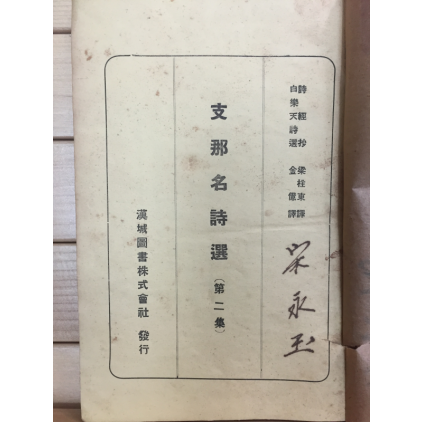 詩經抄 梁柱東譯
白樂天詩選 金億譯
支那名詩選(第二集)
漢城圖書株式會社 發行
永玉